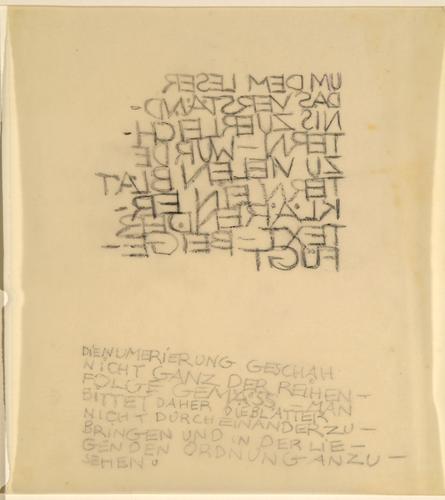 UM DEM LESER
DAS VERSTÄND-
NIS ZU ERLEICH-
TERN – WURDE
ZU VIELEN BLÄT
TERN EIN ER-
KLÄRENDER
TEXT – BEIGE-
FÜGT
DIE NUMERIERUNG GESCHAH
NICHT GANZ DER REIHEN-
FOLGE GEMÄSS – MAN
BITTET DAHER DIE BLÄTTER
NICHT DURCHEINANDERZU-
BRINGEN UND IN DER LIE-
GENDEN ORDNUNG ANZU-
SEHEN.